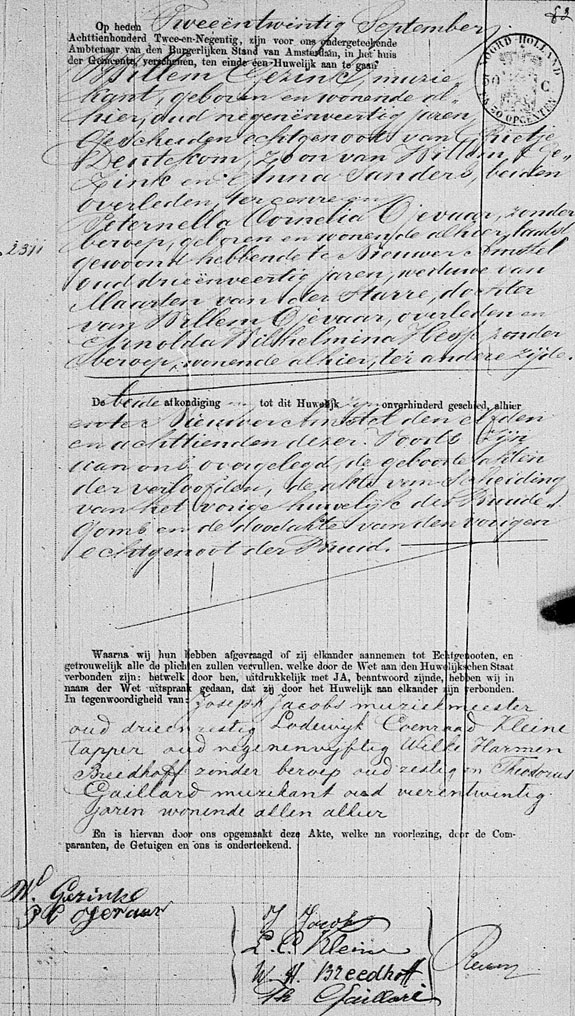 82
Op heden Tweeëntwintig September
Achttienhonderd Twee-en-Negentig, zijn voor ons ondergeteekende
Ambtenaar van den Burgerlijken Stand van Amsterdam, in het huis
der Gemeente, verschenen, ten einde een Huwelijk aan te gaan
NOORD-HOLLAND
50 C.
EN 30 OPCENTEN
Willem Gezink, muzie
kant, geboren en wonende al„
hier, oud negenenveertig jaren,
Gescheiden echtgenoot van Grietje
Deutekom, zoon van Willem Ge
zink en Anna Sanders, beiden
overleden, ter eenre en
Peternella Cornelia Ojevaar, zonder
beroep, geboren en wonende alhier, laatst
gewoond hebbende te Nieuwer Amstel
oud drieënveertig jaren, weduwe van
Maarten van der Starre, dochter
van Willem Ojevaar, overleden en
Arnolda Wilhelmina Hesp zonder
beroep, wonende alhier, ter andere zijde.
De beide afkondiging en tot dit Huwelijk zijn onverhinderd geschied, alhier
en te Nieuwer Amstel den elfden
en achttienden dezer. Voorts zijn
aan ons overgelegd, de geboorteakten
der verloofden, de akte van Scheiding
van het vorige huwelijk des Bruide„
goms en de doodakte van den vorigen
echtgenoot der Bruid.
Waarna wij hun hebben afgevraagd of zij elkander aannemen tot Echtgenooten, en
getrouwelijk alle de plichten zullen vervullen, welke door de Wet aan den Huwelijkschen Staat
verbonden zijn: hetwelk door hen, uitdrukkelijk met JA, beantwoord zijnde, hebben wij in
naam der Wet uitspraak gedaan, dat zij door het Huwelijk aan elkander zijn verbonden.
In tegenwoordigheid van: Joseph Jacobs muziekmeester
oud drieenzestig Lodewyk Coenraad Kleine
tapper oud negenenvyftig Wilke Harmen
Breedhoff zonder beroep oud zestig en Theodorus
Gaillard muzikant oud vierentwintig
Jaren wonende allen alhier
En is hiervan door ons opgemaakt deze Akte, welke na voorlezing, door de Com-
paranten, de Getuigen en ons is onderteekend.
Wl Gezink
P C Ojevaar
J Jacobs
L. C. Kleine
W. H. Breedhoff
Th Gaillard